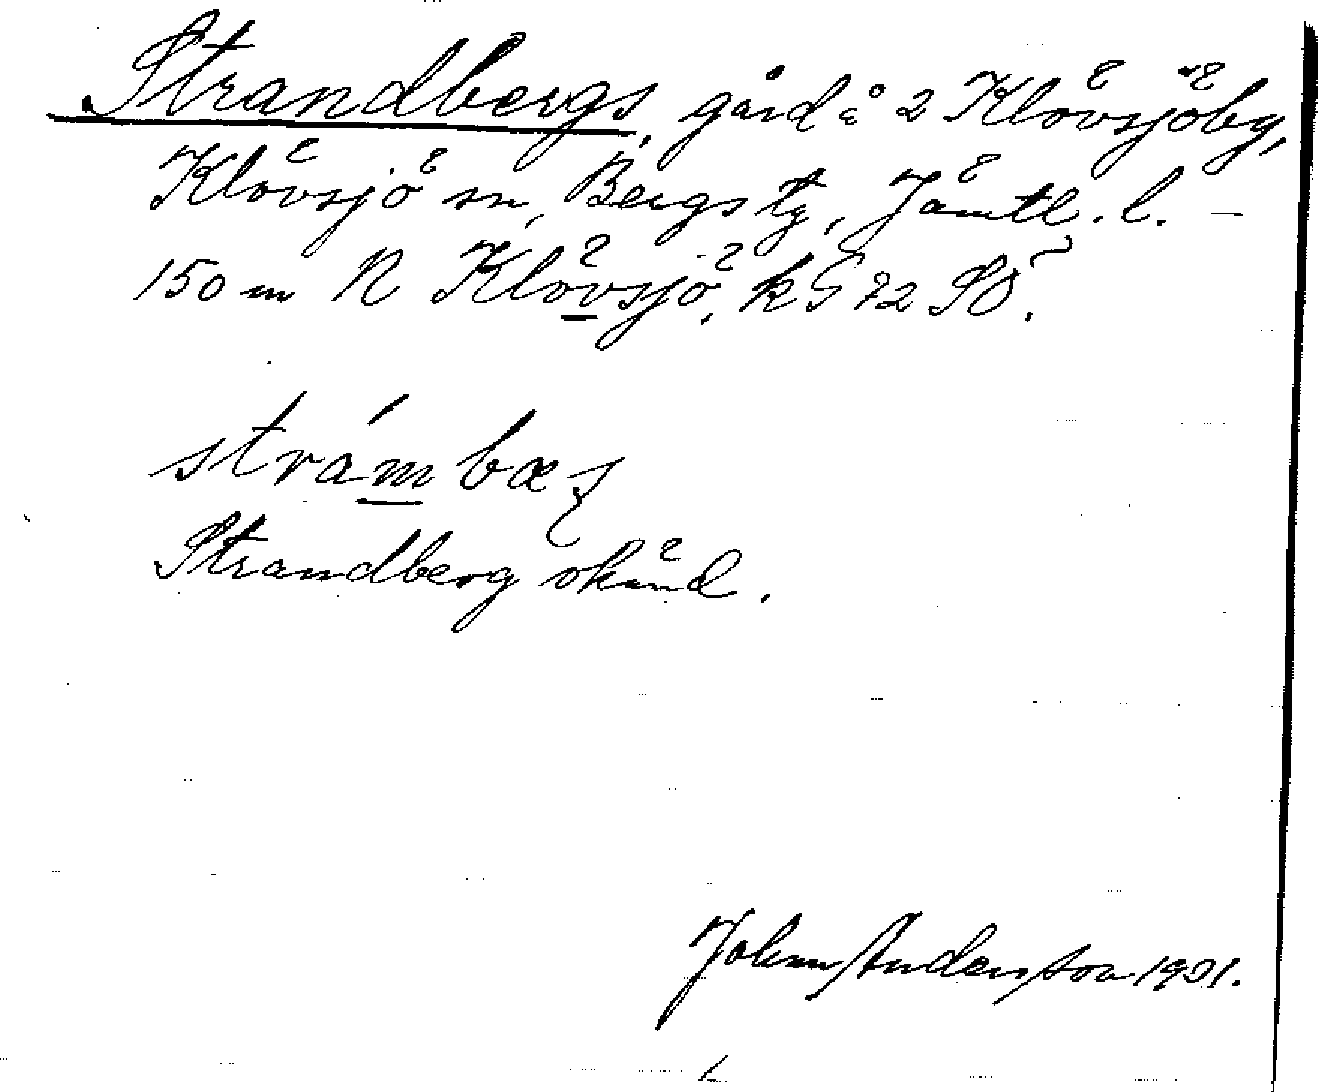 Strandbergs, gård å 2 Klövsjöby,
Klövsjö sn, Bergs tg, Jämtl. l. –
150 m N Klövsjö, k G 72 SÖ.
strám bæ
Strandberg okänd.
Johan Anderson 1931.